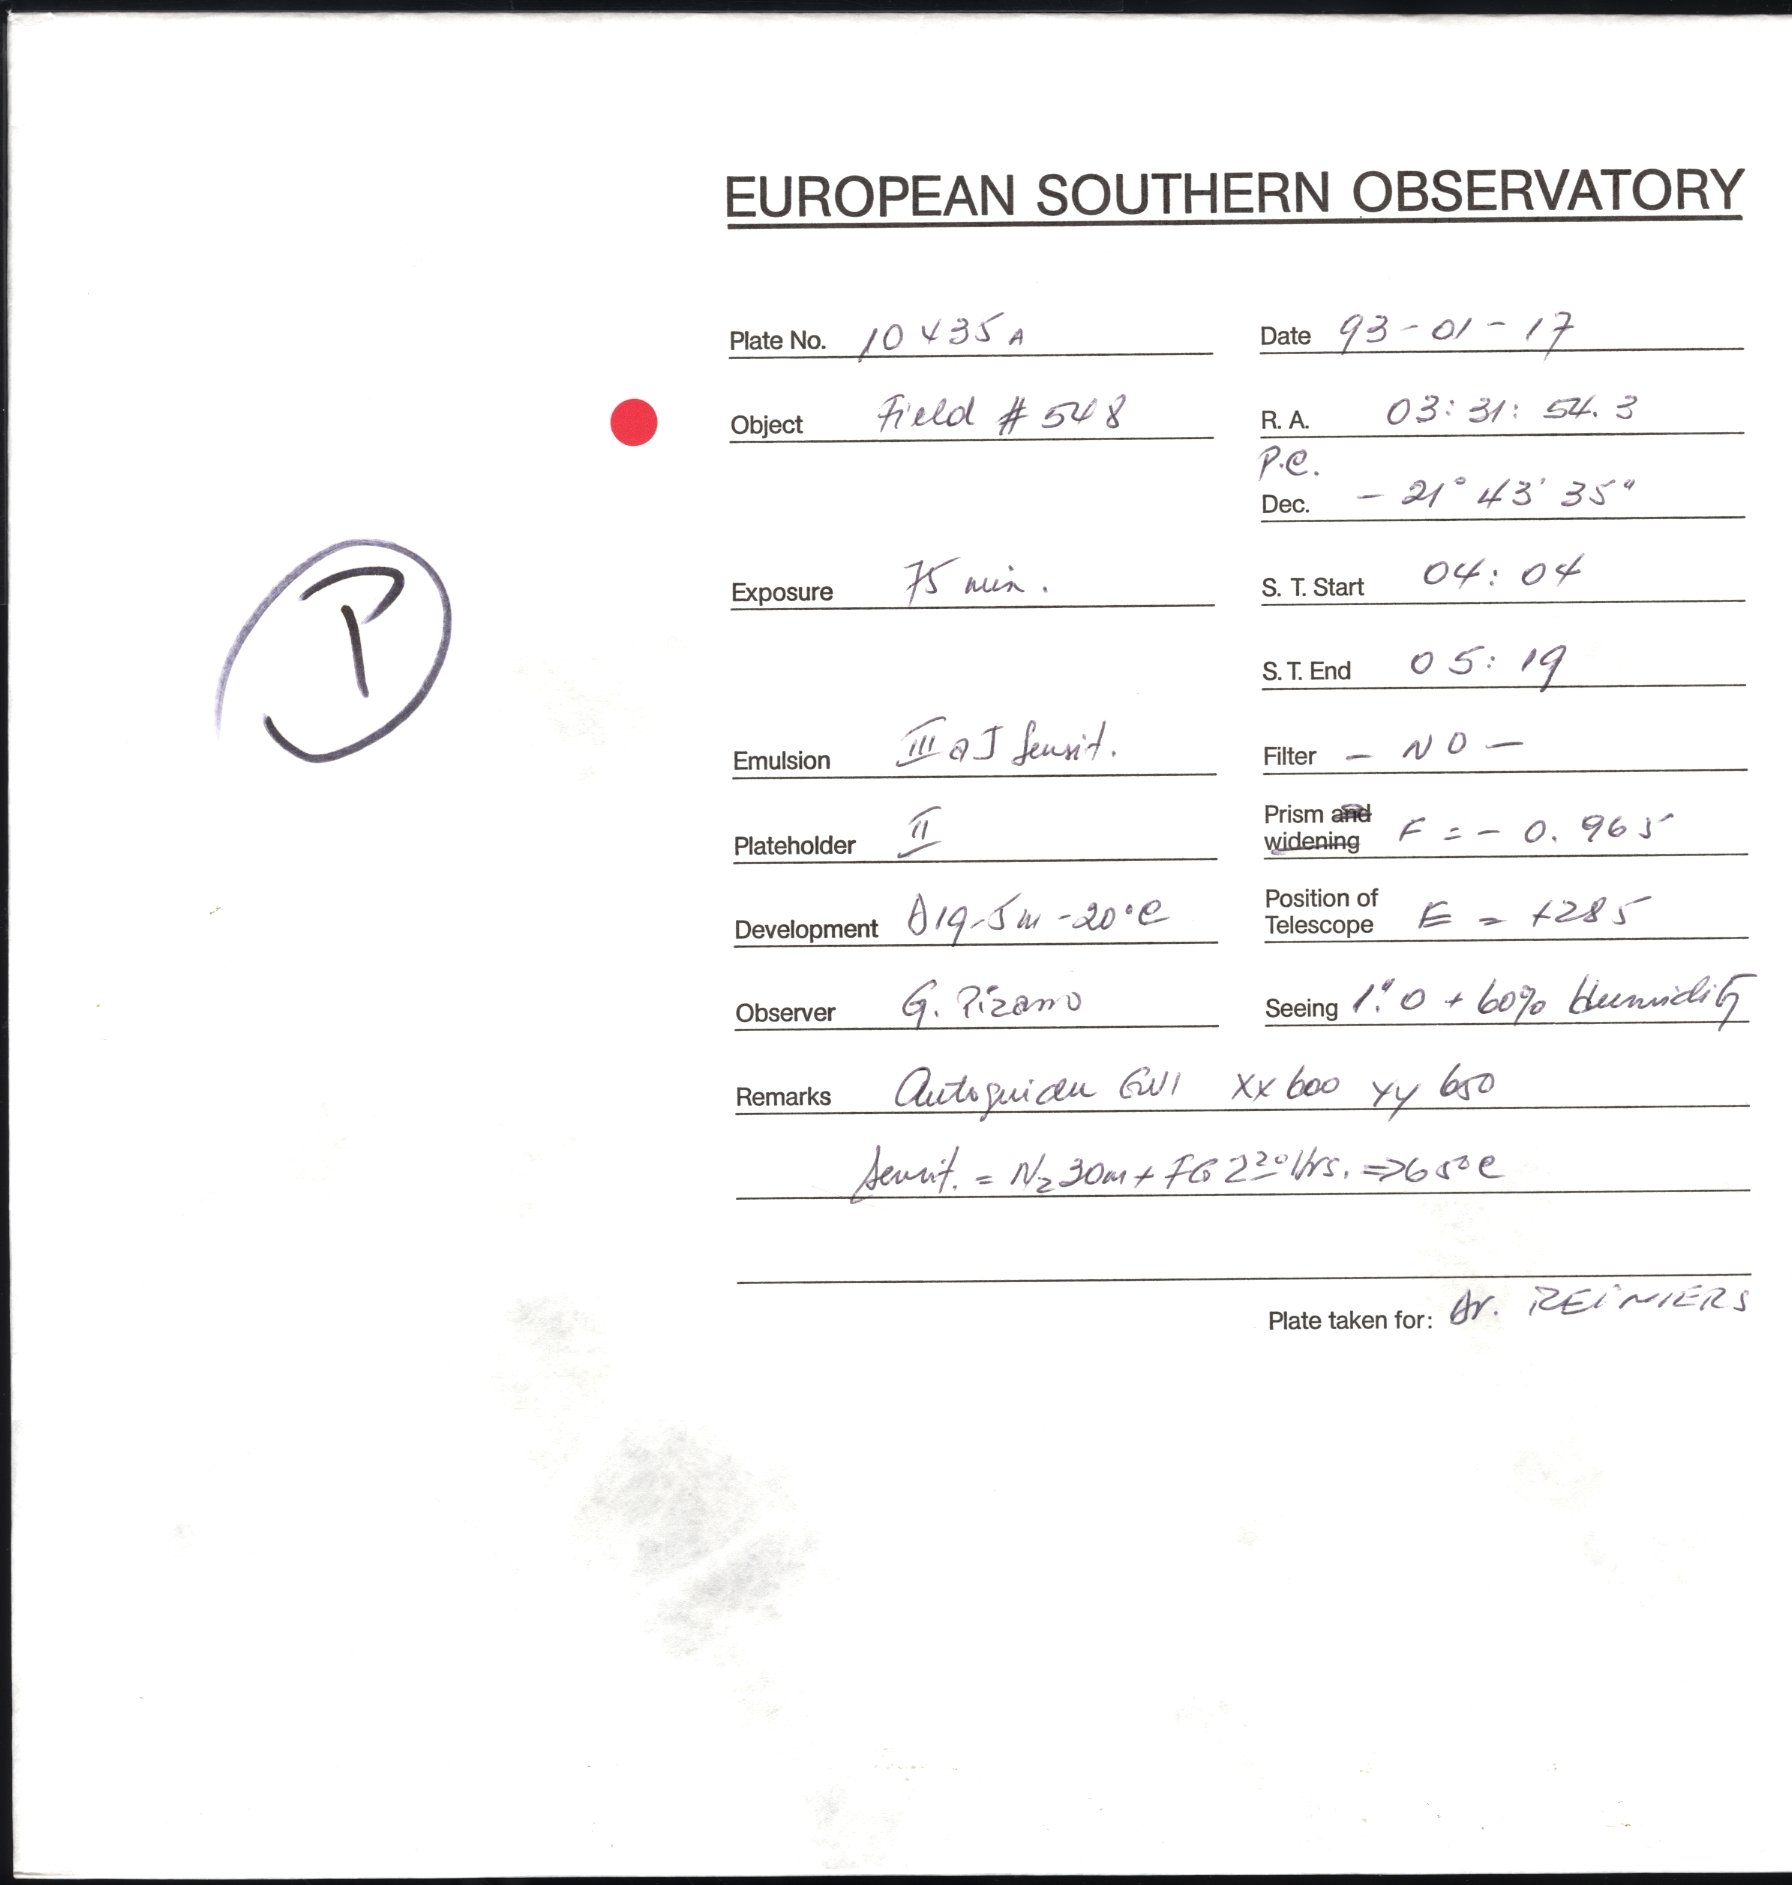 EUROPEAN SOUTHERN OBSERVATORY
Plate No. 10435A Date 93-01-17
Object Field # 548 R. A. 03:31:54.3
P.C.
Dec. - 21° 43' 35"
P
Exposure 75 min. S. T. Start 04:04
S. T. End 05:19
Emulsion III a J Sensit. Filter - NO -
Plateholder II Prism and widening F = - 0.965
Development D19-5m-20°C Position of Telescope E = +285
Observer G. Pizarro Seeing 1."0 + 60% Humidity
Remarks Autoguider XX 600 YY 650
Sensit. = N2 30m + FG 2 20 Hrs. => 65°C
Plate taken for: Dr. REiNIERS